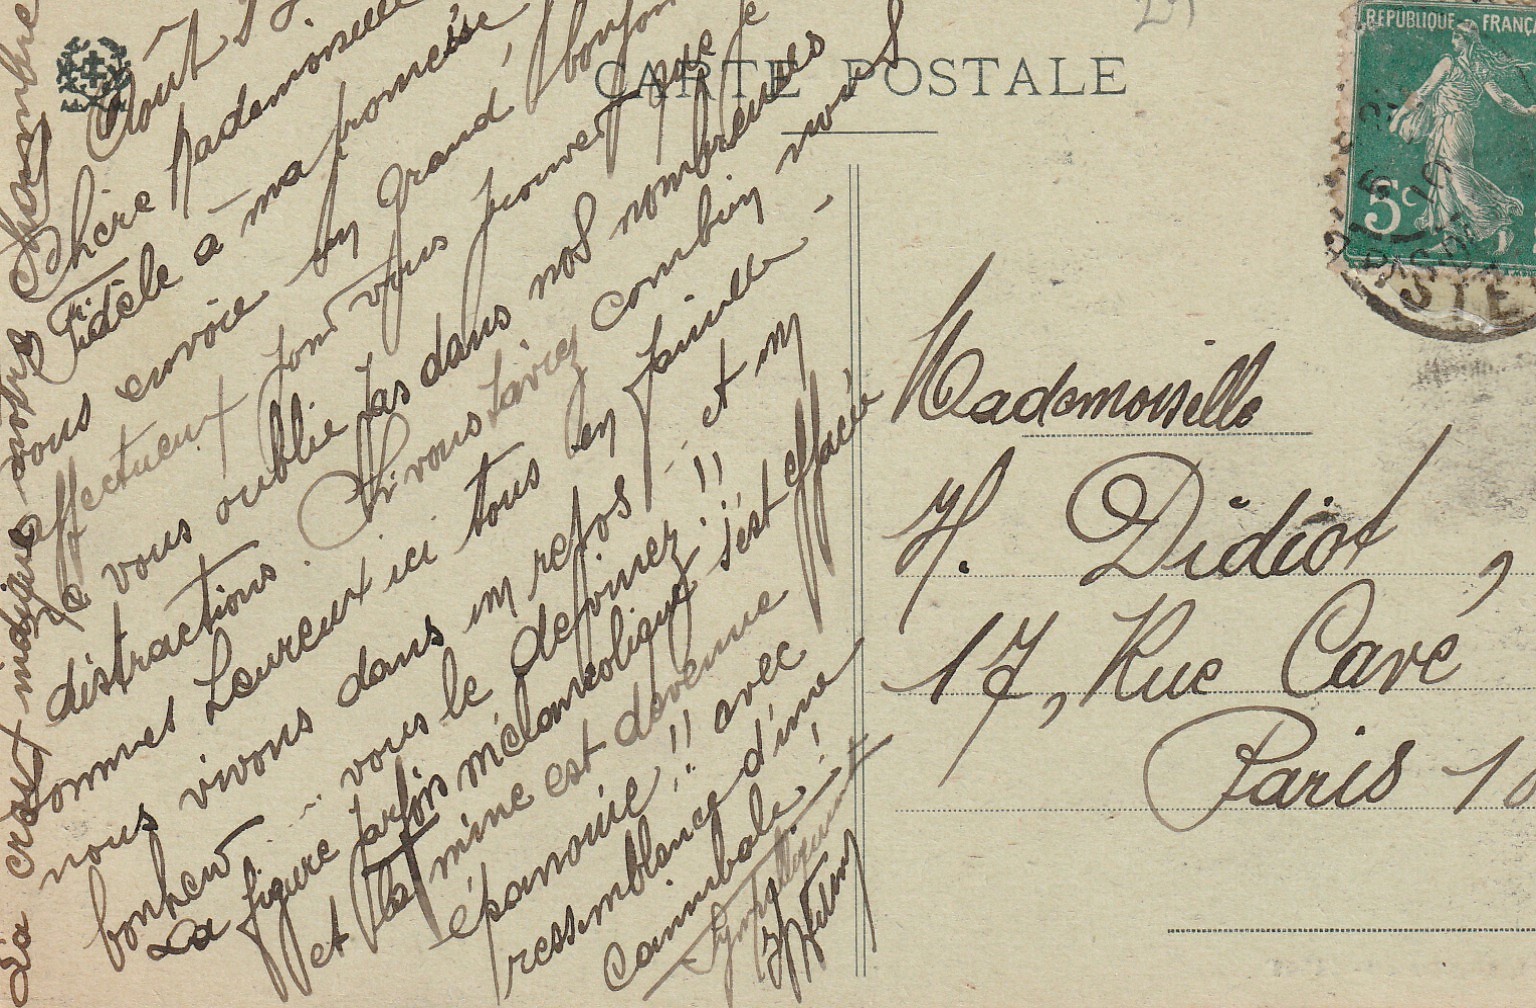 CARTE POSTALE
REPUBLIQUE FRANÇA
5c
Août
Chère Mademoiselle
Fidèle à ma promesse
vous envoie un grand bonjour
affectueux pour vous prouver que je
ne vous oublie pas dans nos nombreuses
distractions. Si vous saviez combien nous
sommes heureux ici tous en famille -
nous vivons dans un repos et un
bonheur vous le devinez !!
La figure parfois mélancolique s'est effacée
et la mine est devenue
épanouie !! avec
ressemblance d'une
Cannibale !
Sympathiquement
La croix indique notre chambre
Mademoiselle
H. Didiot,
17, Rue Cavé
Paris 18